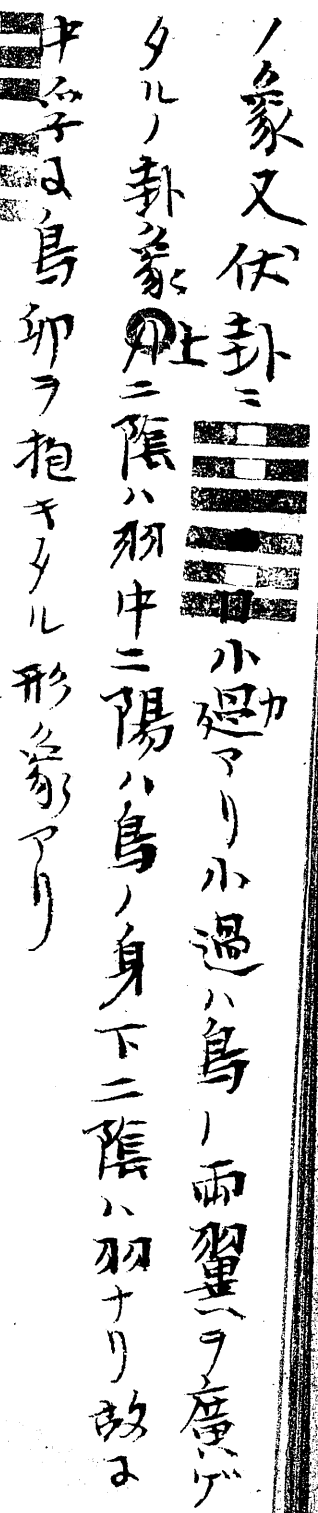 ノ象又伏卦ニ䷽小過アリ小過ハ鳥ノ両翼ヲ廣ゲ
タルノ卦象上ニ陰ハ羽中ニ陽ハ鳥ノ身下ニ陰ハ羽ナリ故ニ
中孚ニ鳥卵ヲ抱キタル形ノ象アリ